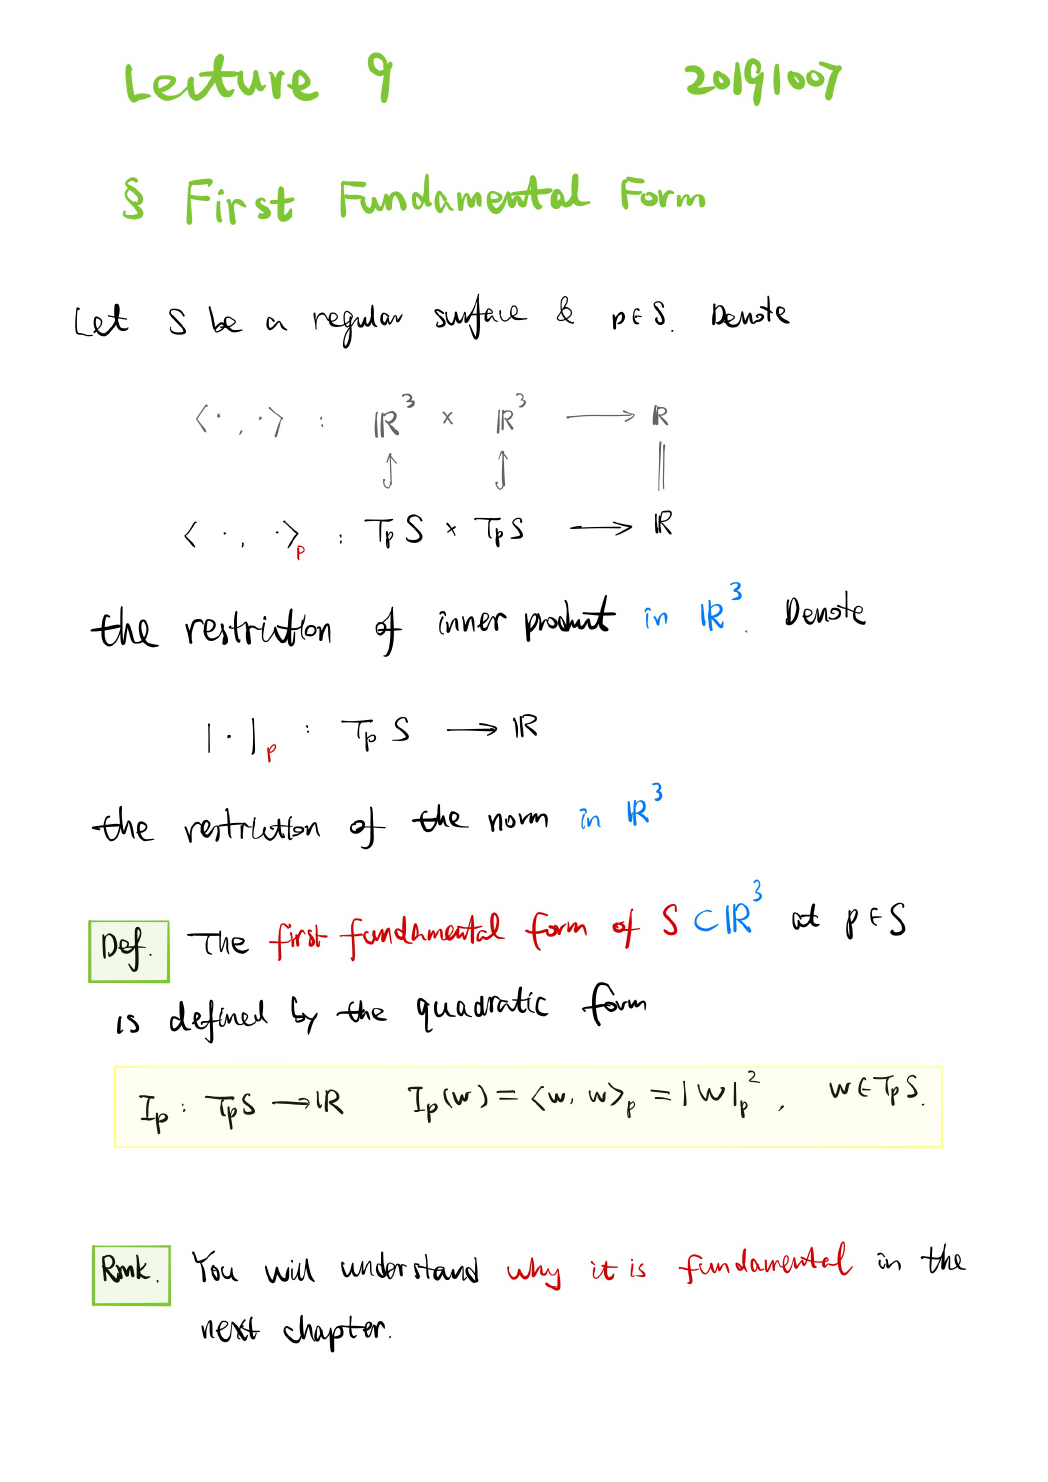 Lecture 9 20191007
§ First Fundamental Form
Let S be a regular surface & p∈S. Denote
⟨·,·⟩ : ℝ³ × ℝ³ ⟶ ℝ
↑ ↑ ||
⟨·,·⟩ₚ : TₚS × TₚS ⟶ ℝ
the restriction of inner product in ℝ³. Denote
|·|ₚ : TₚS ⟶ ℝ
the restriction of the norm in ℝ³
Def. The first fundamental form of S ⊂ ℝ³ at p∈S
is defined by the quadratic form
Iₚ : TₚS ⟶ ℝ Iₚ(w) = ⟨w, w⟩ₚ = |w|ₚ², w∈TₚS.
Rmk. You will understand why it is fundamental in the
next chapter.